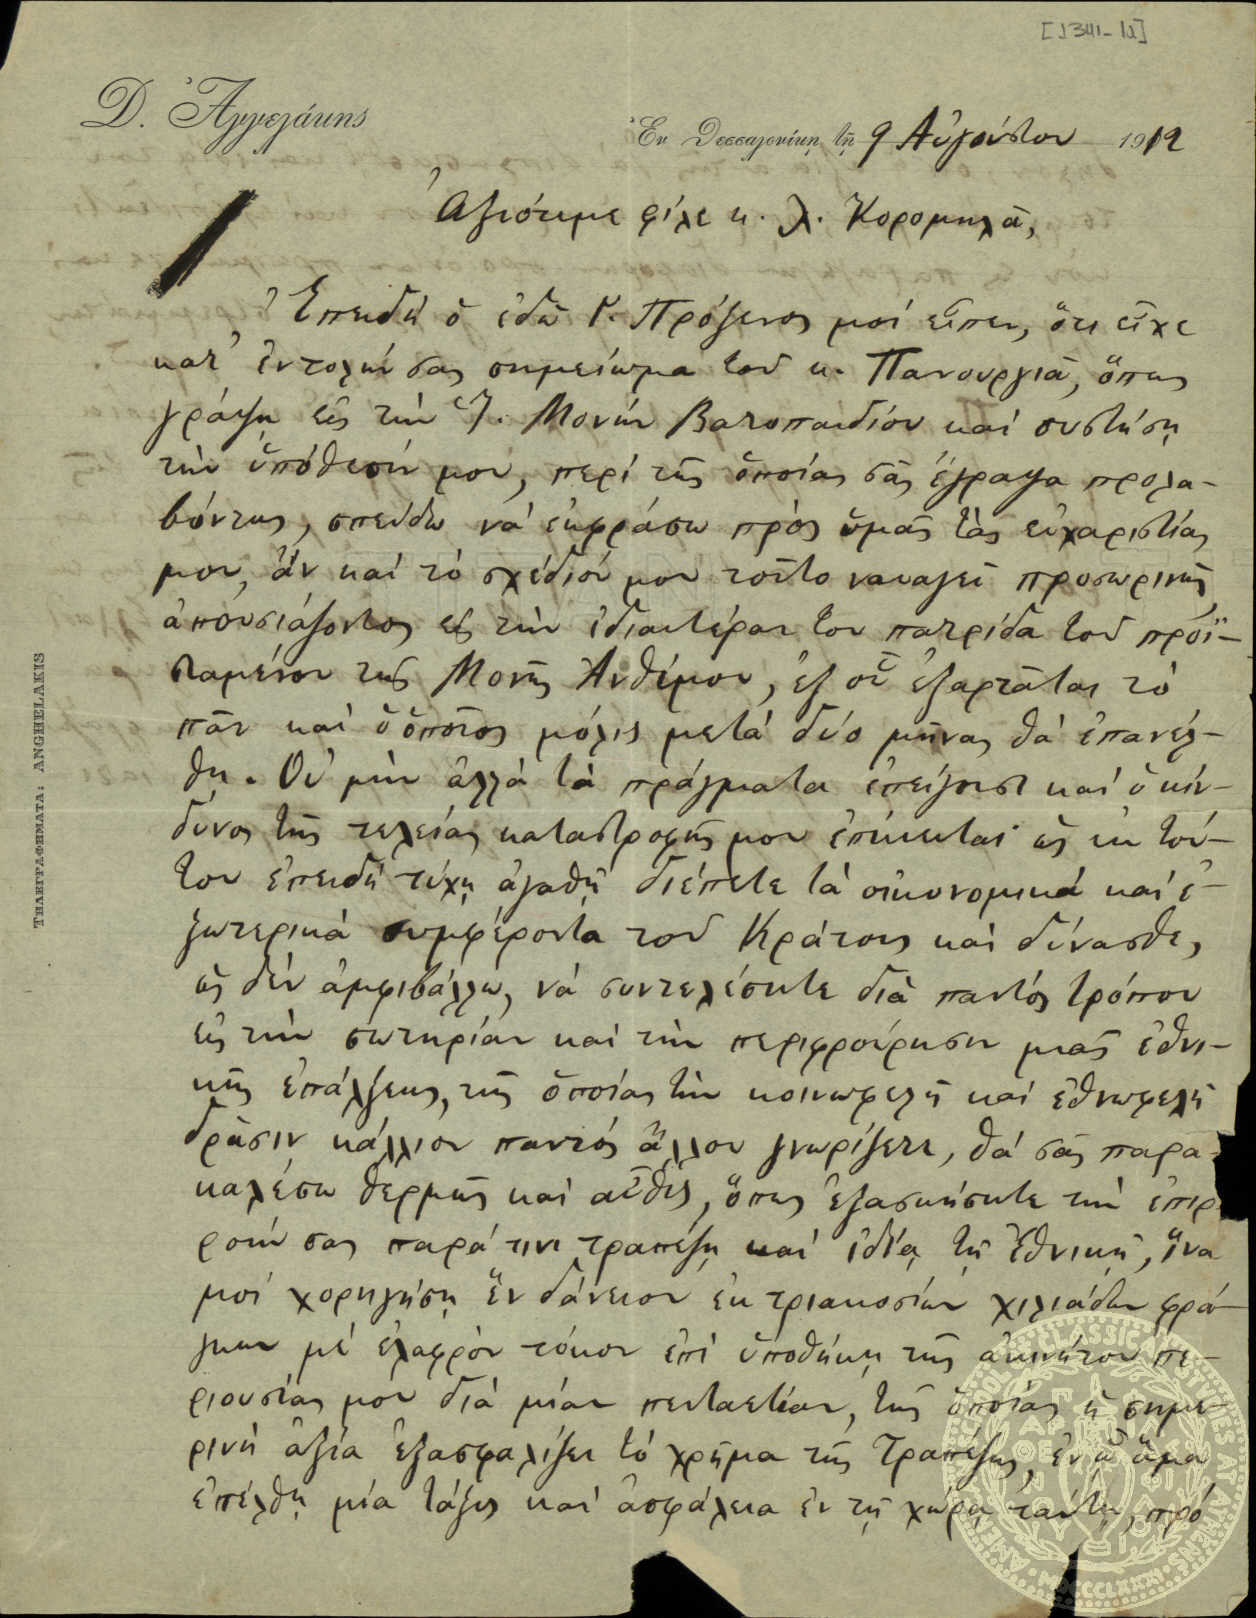 [1341-12]
Δ. Ἀγγελάκης
Ἐν Θεσσαλονίκῃ τῇ 9 Αὐγούστου 1912
Ἀξιότιμε φίλε κ. Λ. Κορομηλᾶ,
Ἐπειδή ὁ ἐδῶ Γ. Πρόξενος μοί εἶπεν, ὅτι εἶχε
κατ' ἐντολήν σας σημείωμα τοῦ κ. Πανουργιᾶ, ὅπως
γράψῃ εἰς τήν Ἱ. Μονήν Βατοπαιδίου καί συστήσῃ
τήν ὑπόθεσίν μου, περί τῆς ὁποίας σᾶς ἔγραψα προλα-
βόντως, σπεύδω νά ἐκφράσω πρός ὑμᾶς τάς εὐχαριστίας
μου, ἄν καί τό σχέδιόν μου τοῦτο ναυαγεῖ προσωρινῶς
ἀπουσιάζοντος εἰς τήν ἰδιαιτέραν του πατρίδα τοῦ προϊ-
σταμένου τῆς Μονῆς Ἀνθίμου, ἐξ οὗ ἐξαρτᾶται τό
πᾶν καί ὁ ὁποῖος μόλις μετά δύο μῆνας θά ἐπανέλ-
θῃ. Οὐ μήν ἀλλά τά πράγματα ἐπείγουσι καί ὁ κίν-
δυνος τῆς τελείας καταστροφῆς μου ἐπίκειται ὡς ἐκ τού-
του ἐπειδή τύχῃ ἀγαθῇ διέπετε τά οἰκονομικά καί ἐ-
ξωτερικά συμφέροντα τοῦ Κράτους καί δύνασθε,
ὡς δέν ἀμφιβάλλω, νά συντελέσητε διά παντός τρόπου
εἰς τήν σωτηρίαν καί τήν περιφρούρησιν μιᾶς ἐθνι-
κῆς ἐπάλξεως, τῆς ὁποίας τήν κοινωφελῆ καί ἐθνωφελῆ
δρᾶσιν κάλλιον παντός ἄλλου γνωρίζετε, θά σᾶς παρα-
καλέσω θερμῶς καί αὖθις, ὅπως ἐξασκήσητε τήν ἐπιρ-
ροήν σας παρά τινι τραπέζῃ καί ἰδίᾳ τῇ Ἐθνικῇ, ἵνα
μοί χορηγήσῃ ἕν δάνειον ἐκ τριακοσίων χιλιάδων φρά-
γκων μέ ἐλαφρόν τόκον ἐπί ὑποθήκῃ τῆς ἀκινήτου πε-
ριουσίας μου διά μίαν πενταετίαν, τῆς ὁποίας ἡ σημε-
ρινή ἀξία ἐξασφαλίζει τό χρῆμα τῆς Τραπέζης, ἐν ᾧ ἅμα
ἐπέλθῃ μία τάξις καί ἀσφάλεια ἐν τῇ χώρᾳ ταύτῃ, πρό
ΤΗΛΕΓΡΑΦΗΜΑΤΑ: ANGHELAKIS
AMERICAN SCHOOL OF CLASSICAL STUDIES AT ATHENS
MDCCCLXXXI